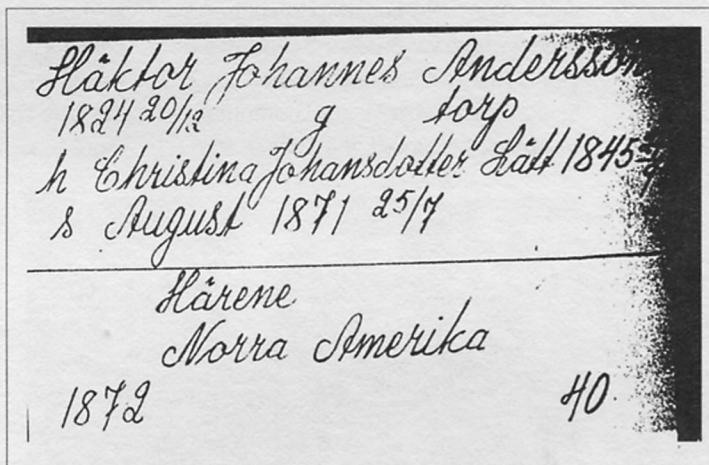 Häktor Johannes Andersson
1824 20/12 g torp
h Christina Johansdotter Lätt 1845
s August 1871 25/7
Härene
Norra Amerika
1872 40